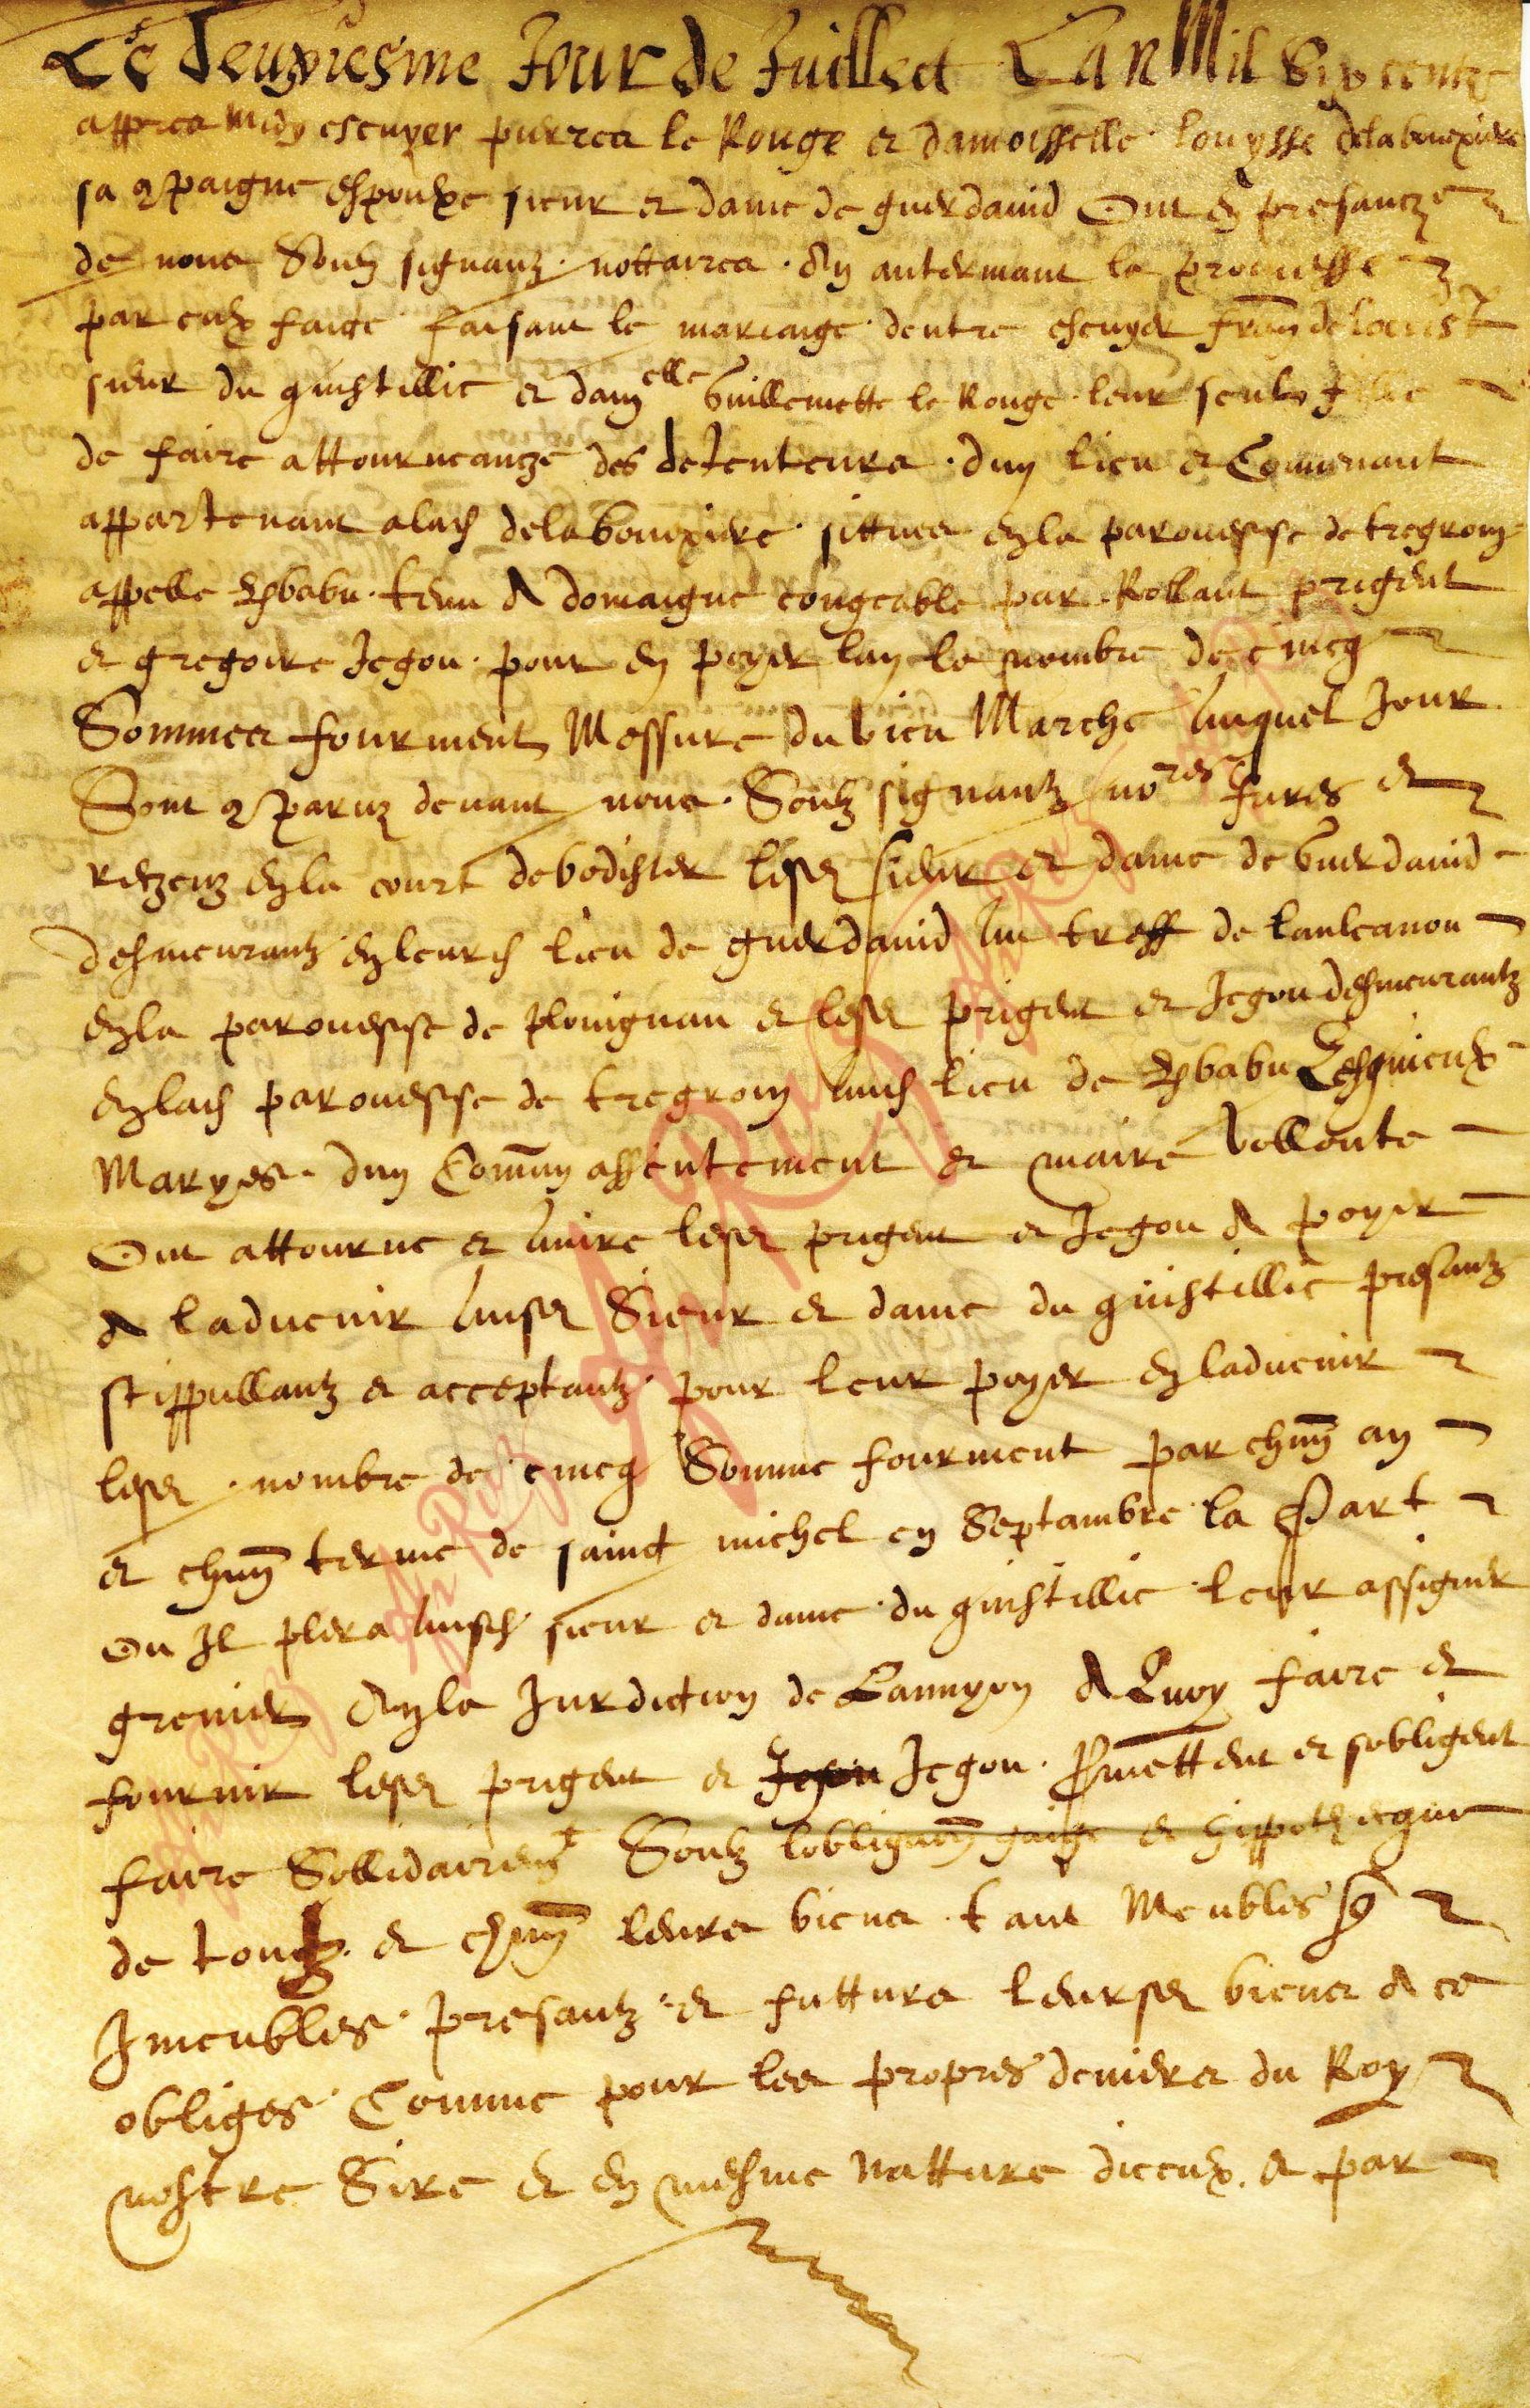 Le deuxiesme Jour de Juillect Lan Mil Six centz
appres midy escuyer pierres le Rouge et damoisselle louysse delabouexiere
sa compaigne espouxe sieur et dame de guerdavid Ont en presanczes
de nous Soubz signantz nottaires en antermant la promesse
par eulx faicte faisant le mariaige dentre escuyer
sieur du guistillic et damelle Guillemette le Rouge leur seule fille
de faire attournance des detenteurs dun lieu et Convenant
appartenant alad delabouexiere sittues en la parouesse de tregrom
appelle kbabu tenu A domaigne congeable par Rollant prigent
et gregoire Jegou pour en poyer lan le nombre de cincq
Sommes fourment Messure du vieu Marche Auquel Jour
Sont comparuz devant nous Soubz signantz nores jures et
receuz en la court de bodister lesd sieur et dame de Guerdavid
desmeurantz en leurd lieu de guerdavid en treff de lanleanou
en la parouesse de plouignau et lesd prigent et Jegou desmeurantz
en lad parouesse de tregrom aud lieu de kbabu Lesquieulx
Maryes dun Comun assentement et vollonte
Ont attourne et lesd prigent et Jegou A poyer
A ladvenir ausd Sieur et dame du guistillic presantz
stippullantz et acceptantz pour leur poyer en ladvenir
lesd nombre de cincq Somme fourment par chun an
et chun terme de sainct michel en Septambre la Part
ou Il plera ausd sieur et dame du guistillic leur assigner
grenier en la Jurdiction de Lannyon A Quoy faire et
fournir lesd prigent et Jegou Jegou Pmettent et sobligent
faire Sollidairemt Soubz lobligaon gaige et hippothecque
de toutz et chun leurs biens tant Meubles q
Jmeubles presantz et futturs leursd biens A ce
obliges Comme pour les propres deniers du Roy
nostre Sire et en mesme natture diceulx et par